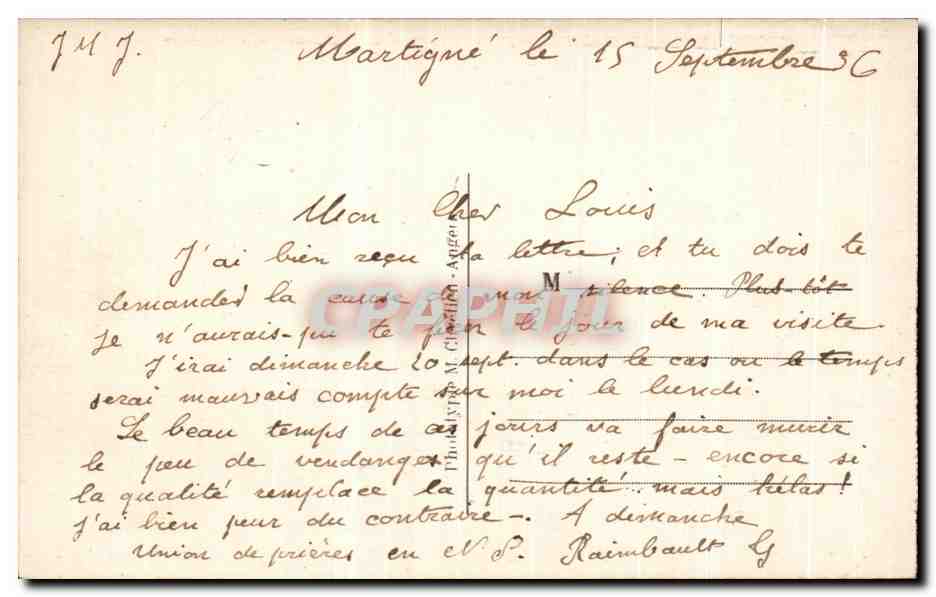 J M J. Martigné le 15 Septembre 36
Mon Cher Louis
J'ai bien reçu ta lettre, et tu dois te
demander la cause de mon silence. Plus-tôt
je n'aurais-pu te fixer le jour de ma visite.
J'irai dimanche 20 sept. dans le cas ou le temps
serai mauvais compte sur moi le lundi.
Le beau temps de ces jours va faire murir
le peu de vendanges qu'il reste - encore si
la qualité remplace la quantité.. mais hélas!
j'ai bien peur du contraire -. A dimanche
Union de prières en N. S. Raimbault
M
Phototypie M. Chrétien - Angers
CPAPHIL